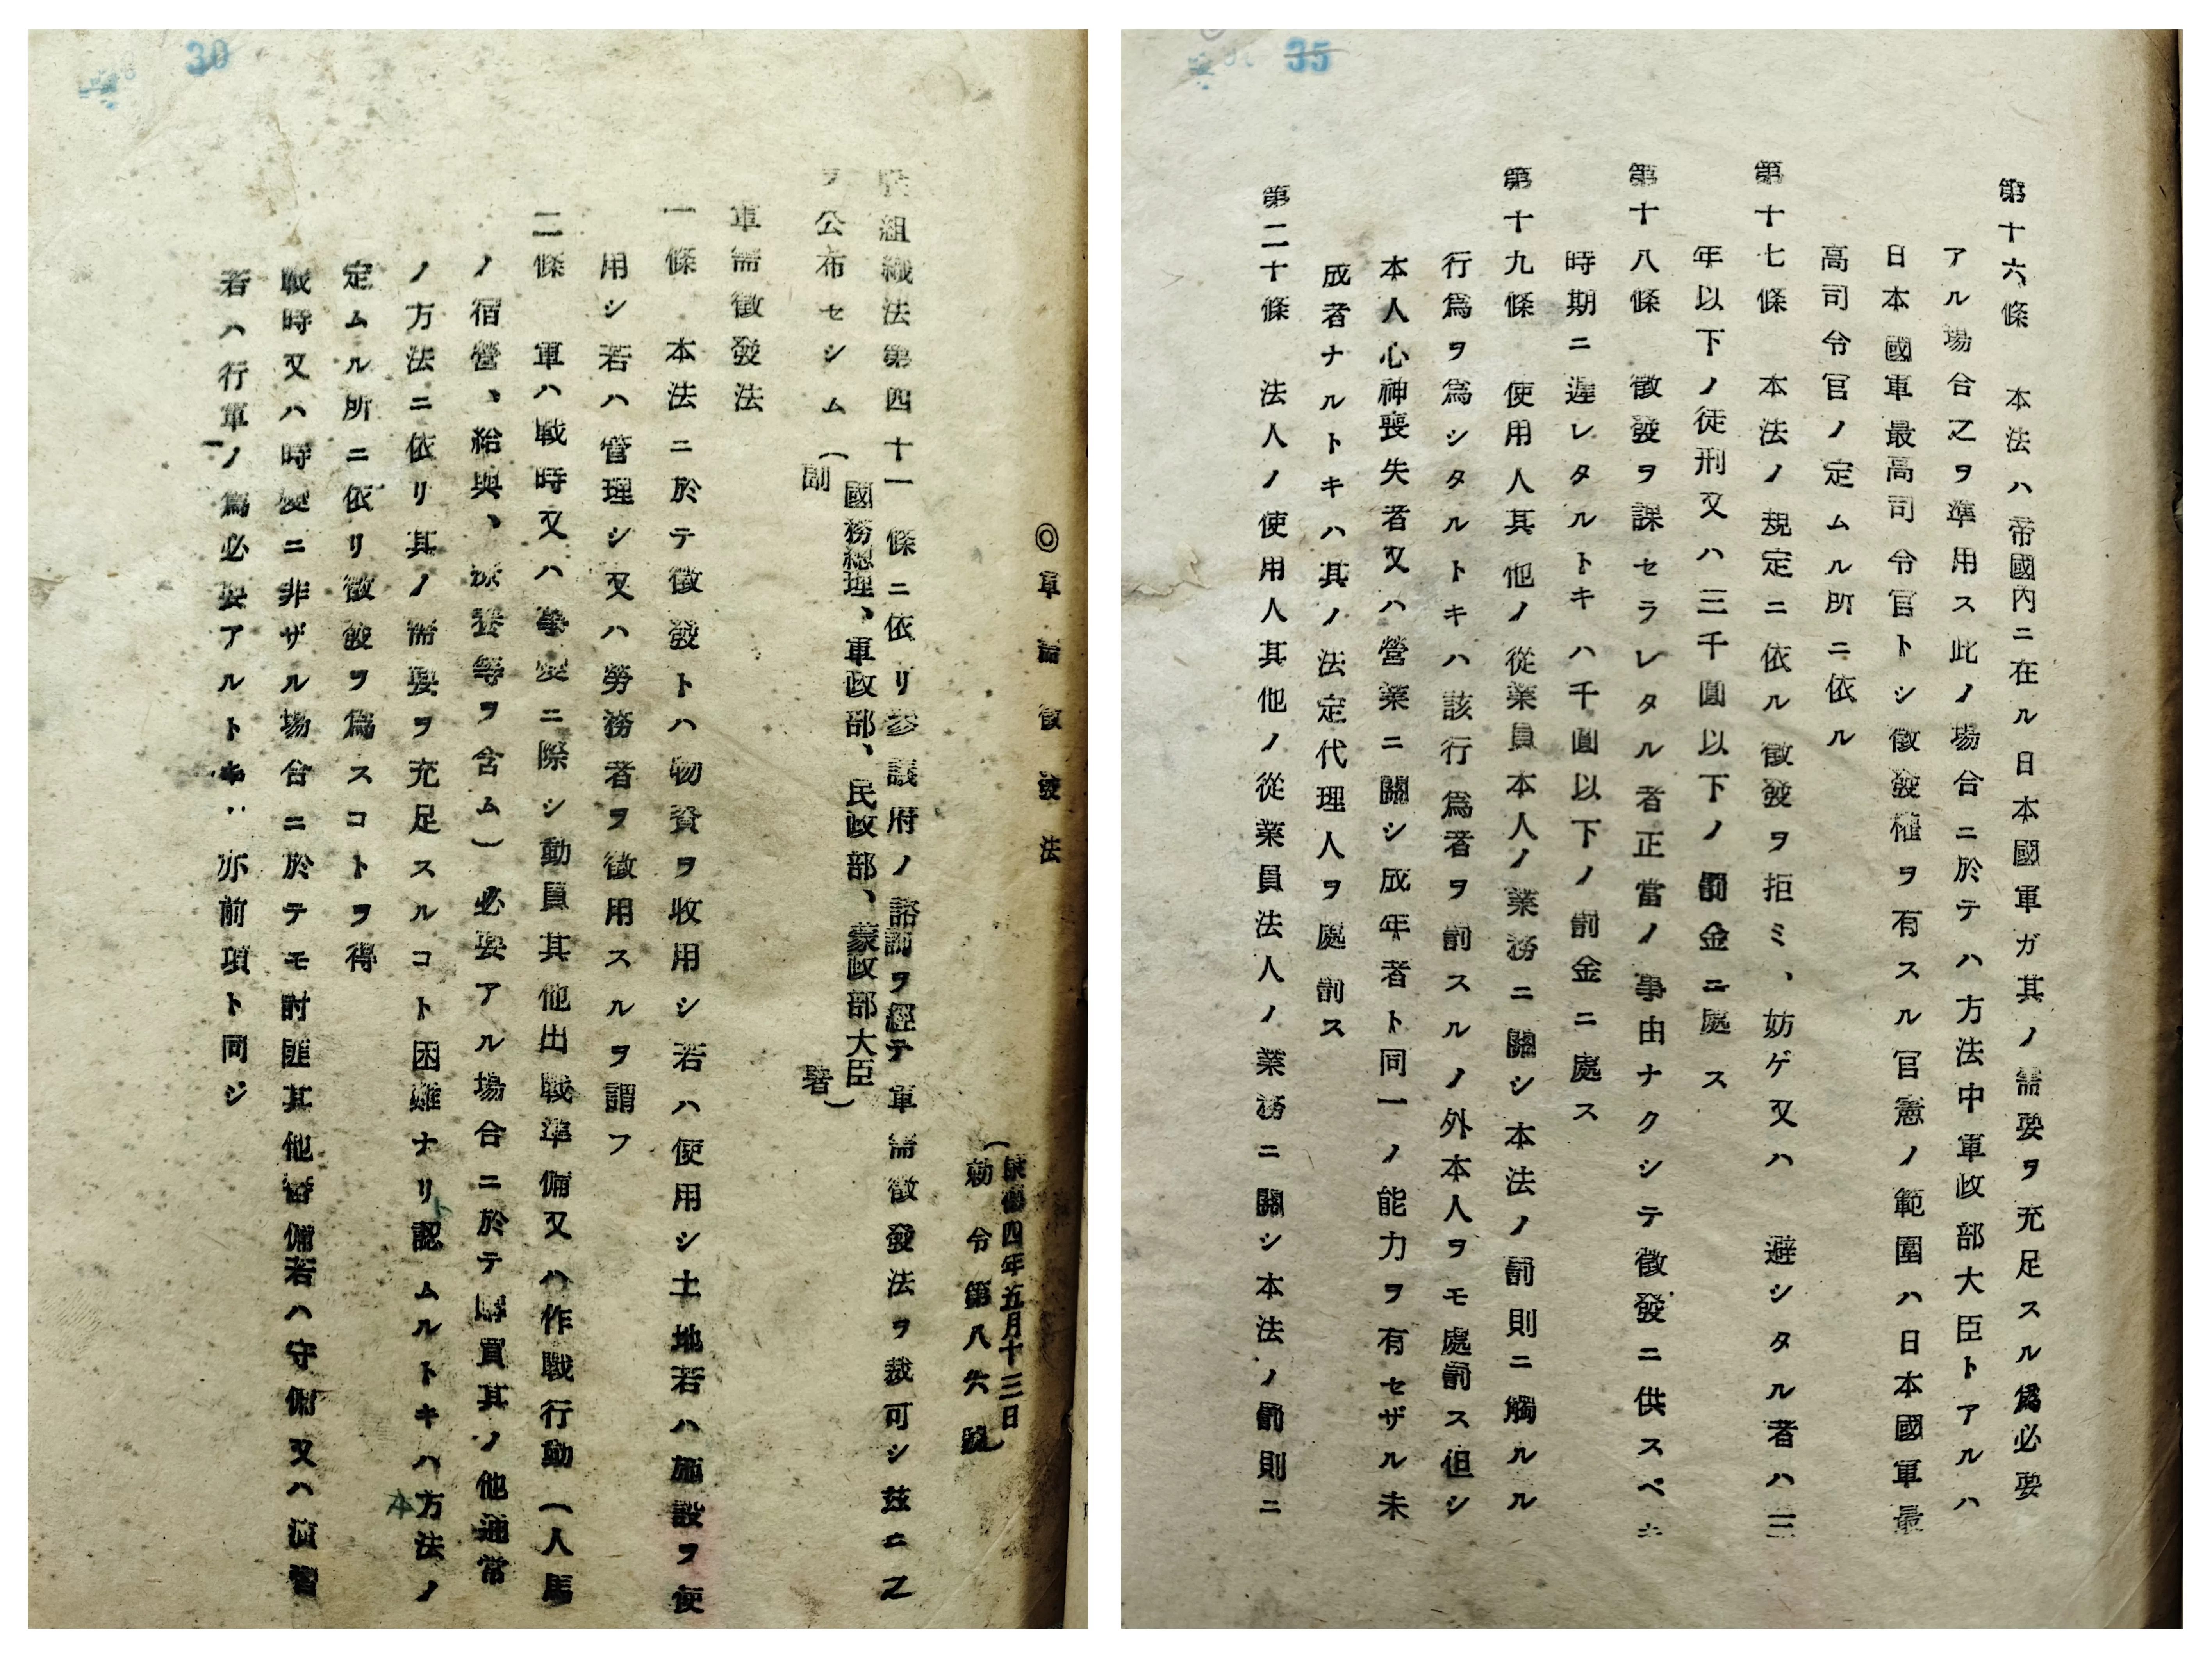 30
◎軍需徵發法
康德四年五月十三日
勅令第八六號
組織法第四十一條ニ依リ參議府ノ諮詢ヲ經テ軍需徵發法ヲ裁可シ茲ニ之
ヲ公布セシム
(國務總理、軍政部、民政部、蒙政部大臣
副署)
軍需徵發法
一條 本法ニ於テ徵發トハ物資ヲ收用シ若ハ使用シ土地若ハ施設ヲ使
用シ若ハ管理シ又ハ勞務者ヲ徵用スルヲ謂フ
二條 軍ハ戰時又ハ事變ニ際シ動員其他出戰準備又ハ作戰行動(人馬
ノ宿營、給與、療養等ヲ含ム)必要アル場合ニ於テ購買其ノ他通常
ノ方法ニ依リ其ノ需要ヲ充足スルコト困難ナリ認ムルトキハ本方法ノ
定ムル所ニ依リ徵發ヲ爲スコトヲ得
戰時又ハ時變ニ非ザル場合ニ於テモ討匪其他警備若ハ守備又ハ演習
若ハ行軍ノ爲必要アルトキ亦前項ト同ジ
35
第十六條 本法ハ帝國內ニ在ル日本國軍ガ其ノ需要ヲ充足スル爲必要
アル場合之ヲ準用ス此ノ場合ニ於テハ方法中軍政部大臣トアルハ
日本國軍最高司令官トシ徵發權ヲ有スル官憲ノ範圍ハ日本國軍最
高司令官ノ定ムル所ニ依ル
第十七條 本法ノ規定ニ依ル徵發ヲ拒ミ、妨ゲ又ハ 避シタル者ハ三
年以下ノ徒刑又ハ三千圓以下ノ罰金ニ處ス
第十八條 徵發ヲ課セラレタル者正當ノ事由ナクシテ徵發ニ供スベキ
時期ニ遲レタルトキハ千圓以下ノ罰金ニ處ス
第十九條 使用人其他ノ從業員本人ノ業務ニ關シ本法ノ罰則ニ觸ルル
行爲ヲ爲シタルトキハ該行爲者ヲ罰スルノ外本人ヲモ處罰ス但シ
本人心神喪失者又ハ營業ニ關シ成年者ト同一ノ能力ヲ有セザル未
成者ナルトキハ其ノ法定代理人ヲ處罰ス
第二十條 法人ノ使用人其他ノ從業員法人ノ業務ニ關シ本法ノ罰則ニ